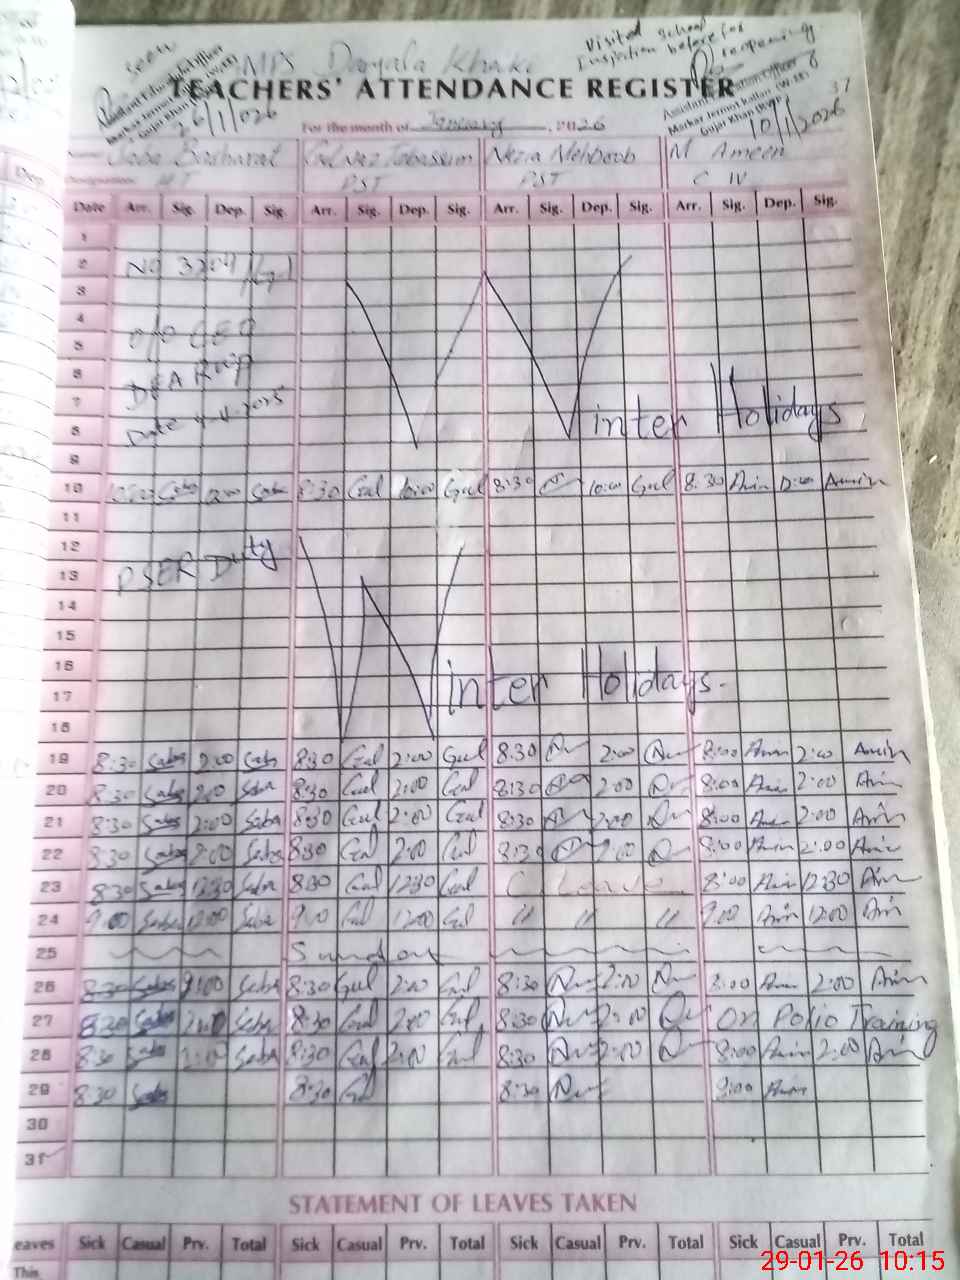 Seen
Visited School
Inspection before
reopening
MPS Daryala Khaki
TEACHERS' ATTENDANCE REGISTER
37
Gujar Khan
26/1/026
10/1/2026
For the month of January, 2026
Saba Basharat Gulnaz Tabassum Nazia Mehboob M Ameen
Designation PST PST C IV
Date Arr. Sig. Dep. Sig. Arr. Sig. Dep. Sig. Arr. Sig. Dep. Sig. Arr. Sig. Dep. Sig.
1
2 No 3204
3
4
5 O/O CEO
6 DEA Rwp
7
8 Date
Winter Holidays
9
10 Saba Saba 8:30 Gul 10:00 Gul 8:30 10:00 Gul 8:30 Amin Amin
11
12
13 PSER Duty
14
15
16
17 Winter Holidays.
18
19 8:30 Saba 2:00 Saba 8:30 Gul 2:00 Gul 8:30 2:00 8:00 Amin 2:00 Amin
20 8:30 Saba 2:00 Saba 8:30 Gul 2:00 Gul 8:30 2:00 8:00 Amin 2:00 Amin
21 8:30 Saba 2:00 Saba 8:30 Gul 2:00 Gul 8:30 2:00 8:00 Amin 2:00 Amin
22 8:30 Saba 2:00 Saba 8:30 Gul 2:00 Gul 8:30 2:00 8:00 Amin 2:00 Amin
23 8:30 Saba 12:30 Saba 8:30 Gul 12:30 Gul C Leave 8:00 Amin 12:30 Amin
24 9:00 Saba 12:00 Saba 9:00 Gul 12:00 Gul " " " 9:00 Amin 12:00 Amin
25 Sunday
26 8:30 Saba 2:00 Saba 8:30 Gul 2:00 Gul 8:30 2:00 8:00 Amin 2:00 Amin
27 8:30 Saba 2:00 Saba 8:30 Gul 2:00 Gul 8:30 2:00 On Polio Training
28 8:30 Saba 2:00 Saba 8:30 Gul 2:00 Gul 8:30 2:00 8:00 Amin 2:00 Amin
29 8:30 Saba 8:30 Gul 8:30 9:00 Amin
30
31
STATEMENT OF LEAVES TAKEN
eaves Sick Casual Prv. Total Sick Casual Prv. Total Sick Casual Prv. Total Sick Casual Prv. Total
This
29-01-26 10:15